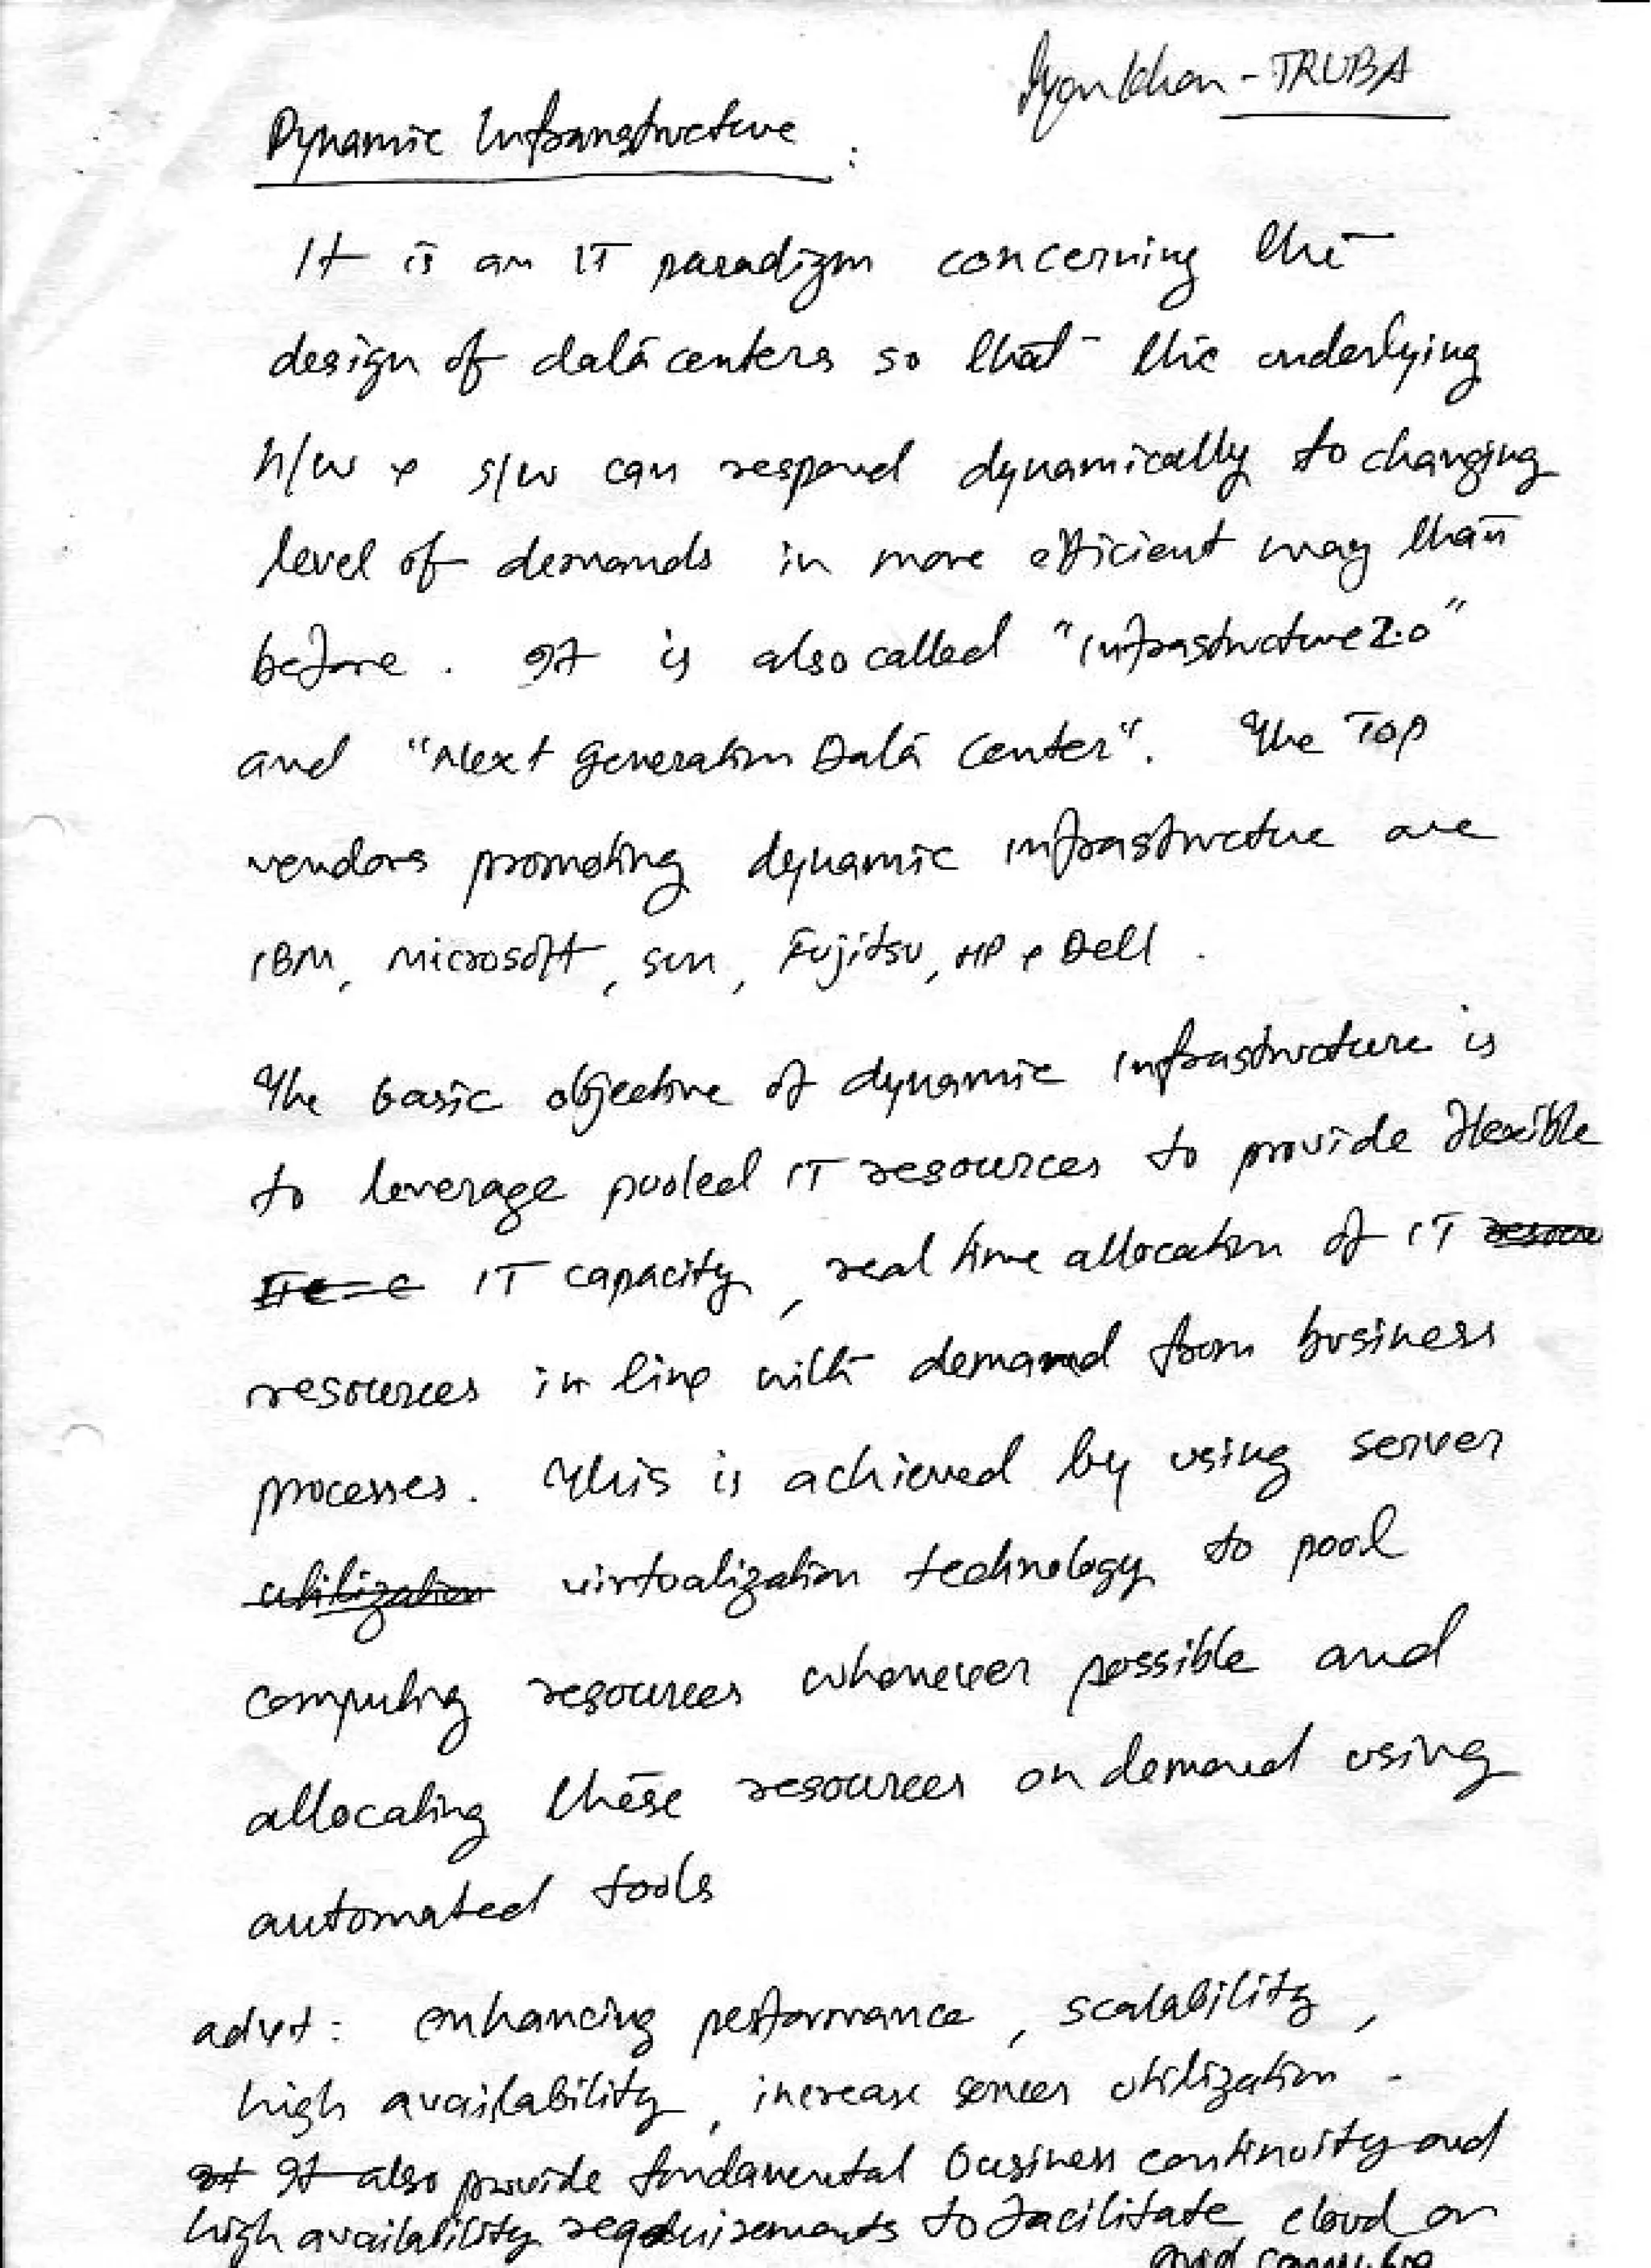 Khan - TRUBA
Dynamic Infranstructure :
It is an IT paradigm concerning the
design of data centers so that the underlying
h/w & s/w can respond dynamically to changing
level of demands in more efficient way than
before. It is also called "infrastructure 2.0"
and "Next generation Data Center". The Top
vendors promoting dynamic infrastructue are
IBM, Microsoft, sun, Fujitsu, HP & Dell.
The basic objective of dynamic infrastructure is
to leverage pooled IT resources to provide flexible
IT capacity, real time allocation of IT
resources in line with demand from business
processes. This is achieved by using server
utilization virtualization technology to pool
computing resources whenever possible and
allocating these resources on demand using
automated tools
advt: enhancing performance, scalability,
high availability, increase server utilization.
It also provide fundamental business continuity and
high availability requirements to facilitate cloud or
grid computing